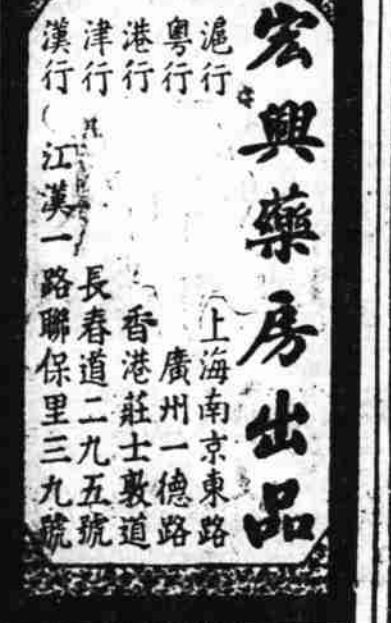 宏興藥房出品
滬行 上海南京東路
粵行 廣州一德路
港行 香港莊士敦道
津行 長春道二九五號
漢行 江漢一路聯保里三九號